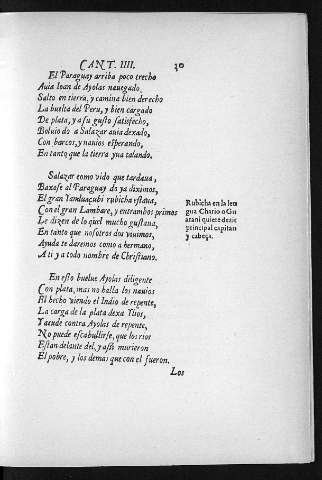 CANT. IIII. 30
El Paraguay arriba poco trecho
Auia Ioan de Ayolas nauegado,
Salto en tierra, y camina bien derecho
La buelta del Peru, y bien cargado
De plata, y a su gusto satisfecho,
Boluio do a Salazar auia dexado,
Con barcos, y nauios esperando,
En tanto que la tierra yua talando.
Salazar como vido que tardaua,
Baxose al Paraguay do ya diximos,
El gran Yanduaçubi rubicha estaua,
Con el gran Lambare, y entrambos primos
Le dizen de lo qual mucho gustaua,
En tanto que nosotros dos viuimos,
Ayuda te daremos como a hermano,
A ti y a todo nombre de Christiano.
Rubicha en la len
gua Chario o Gu
arani quiere dezir
principal capitan
y cabeça.
En esto buelue Ayolas diligente
Con plata, mas no halla los nauios
El hecho viendo el Indio de repente,
La carga de la plata dexa
Yacude contra Ayolas de repente,
No puede escabullirse, que los rios
Estan delante del, y assi murieron
El pobre, y los demas que con el fueron.
Los